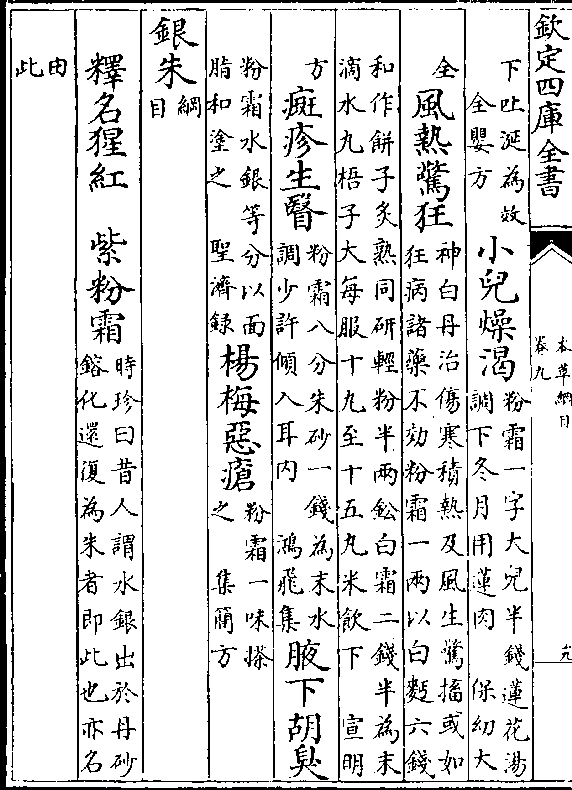 欽定四庫全書
本草綱目
卷九
下吐涎為效
全嬰方
小兒燥渴
粉霜一字大兒半錢蓮花湯
調下冬月用蓮肉　保幼大
全
風熱驚狂
神白丹治傷寒積熱及風生驚搐或如
狂病諸藥不効粉霜一兩以白麪六錢
和作餅子炙熟同研輕粉半兩鈆白霜二錢半為末
滴水丸梧子大每服十丸至十五丸米飲下　宣明
方
斑疹生瞖
粉霜八分朱砂一錢為末水
調少許傾入耳內　鴻飛集
腋下胡臭
粉霜水銀等分以面
脂和塗之　聖濟録
楊梅惡瘡
粉霜一味搽
之　集簡方
銀朱
綱
目
釋名猩紅　紫粉霜
時珍曰昔人謂水銀出於丹砂
鎔化還復為朱者即此也亦名
由
此